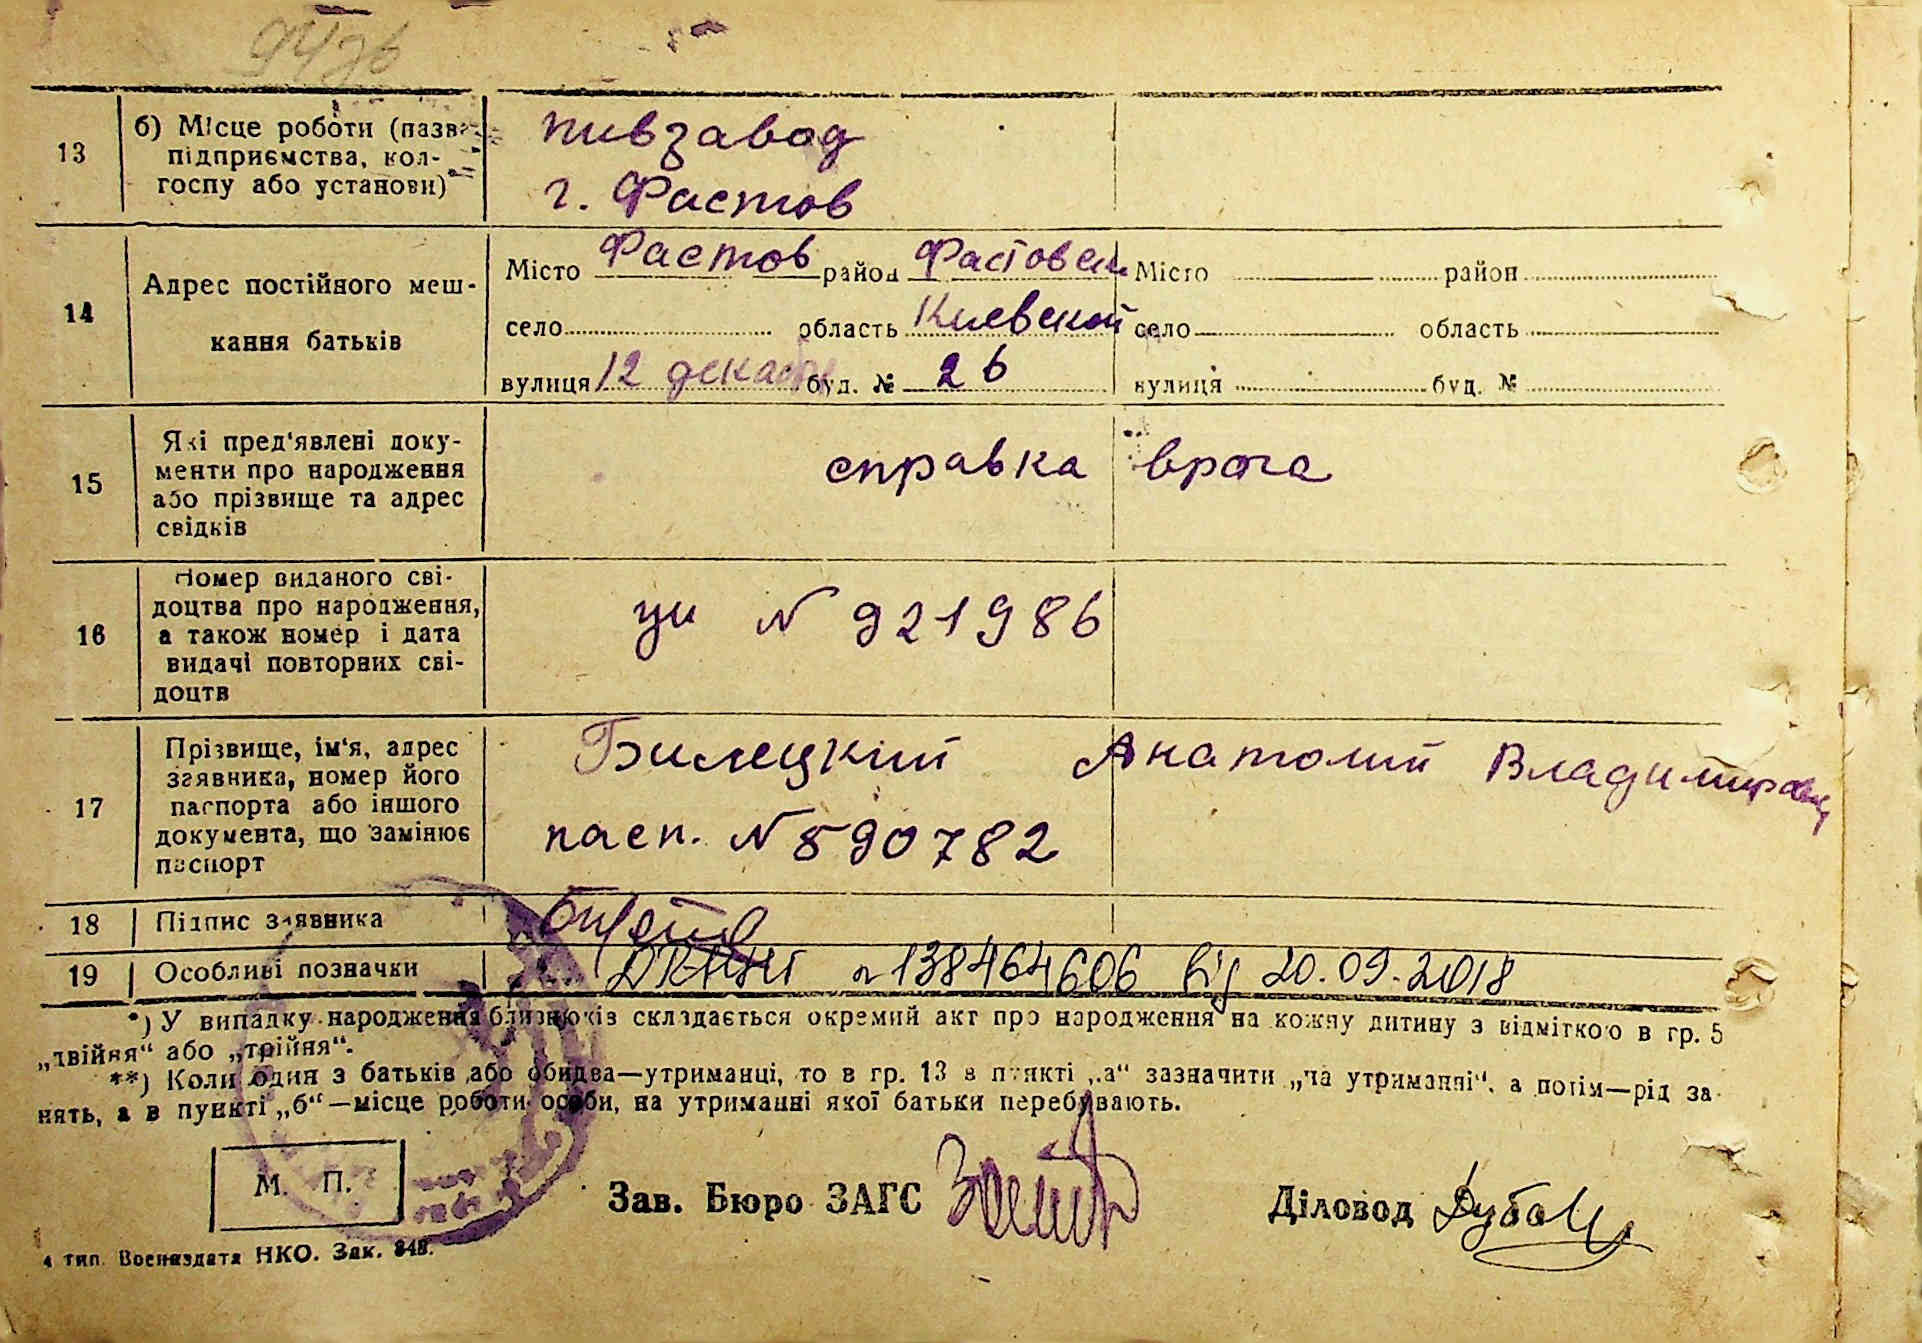 13 б) Місце роботи (назва підприємства, кол-
госпу або установи)
пивзавод
г. Фастов
14 Адрес постійного меш-
кання батьків
Місто Фастов район Фастовск Місто район
село область Киевской село область
вулиця 12 декабр буд. № 26 вулиця буд. №
15 Які пред'явлені доку-
менти про народження
або прізвище та адрес
свідків
справка врача
16 Номер виданого сві-
доцтва про народження,
а також номер і дата
видачі повторних сві-
доцтв
N 921986
17 Прізвище, ім'я, адрес
заявника, номер його
паспорта або іншого
документа, що замінює
паспорт
Билецкий Анатолий Владимирович
пасп. N 590782
18 Підпис заявника
19 Особливі позначки
№ 138464606 від 20.09.2018
*) У випадку народження близнюків складається окремий акт про народження на кожну дитину з відміткою в гр. 5
„двійня“ або „трійня“.
**) Коли один з батьків або обидва—утриманці, то в гр. 13 в пункті „а“ зазначити „на утриманні“, а потім—рід за-
нять, а в пункті „б“—місце роботи особи, на утриманні якої батьки перебувають.
М. П.
Зав. Бюро ЗАГС
Діловод
4 тип. Воениздата НКО. Зак. 848.